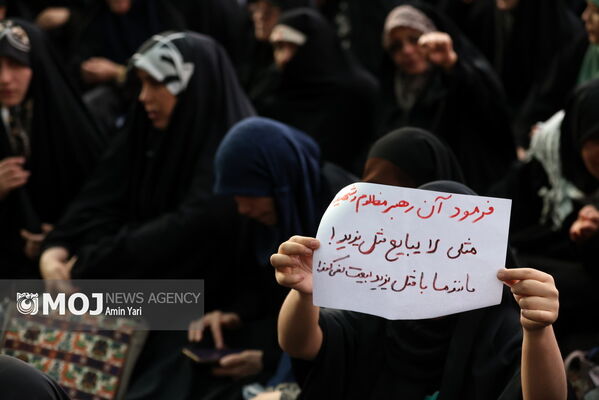 فرمود آن رهبر مظلوم و شهید
مثلی لا یبایع مثل یزید !
مانند ما با مثل یزید بیعت نمی‌کند!
MOJ NEWS AGENCY
Amin Yari